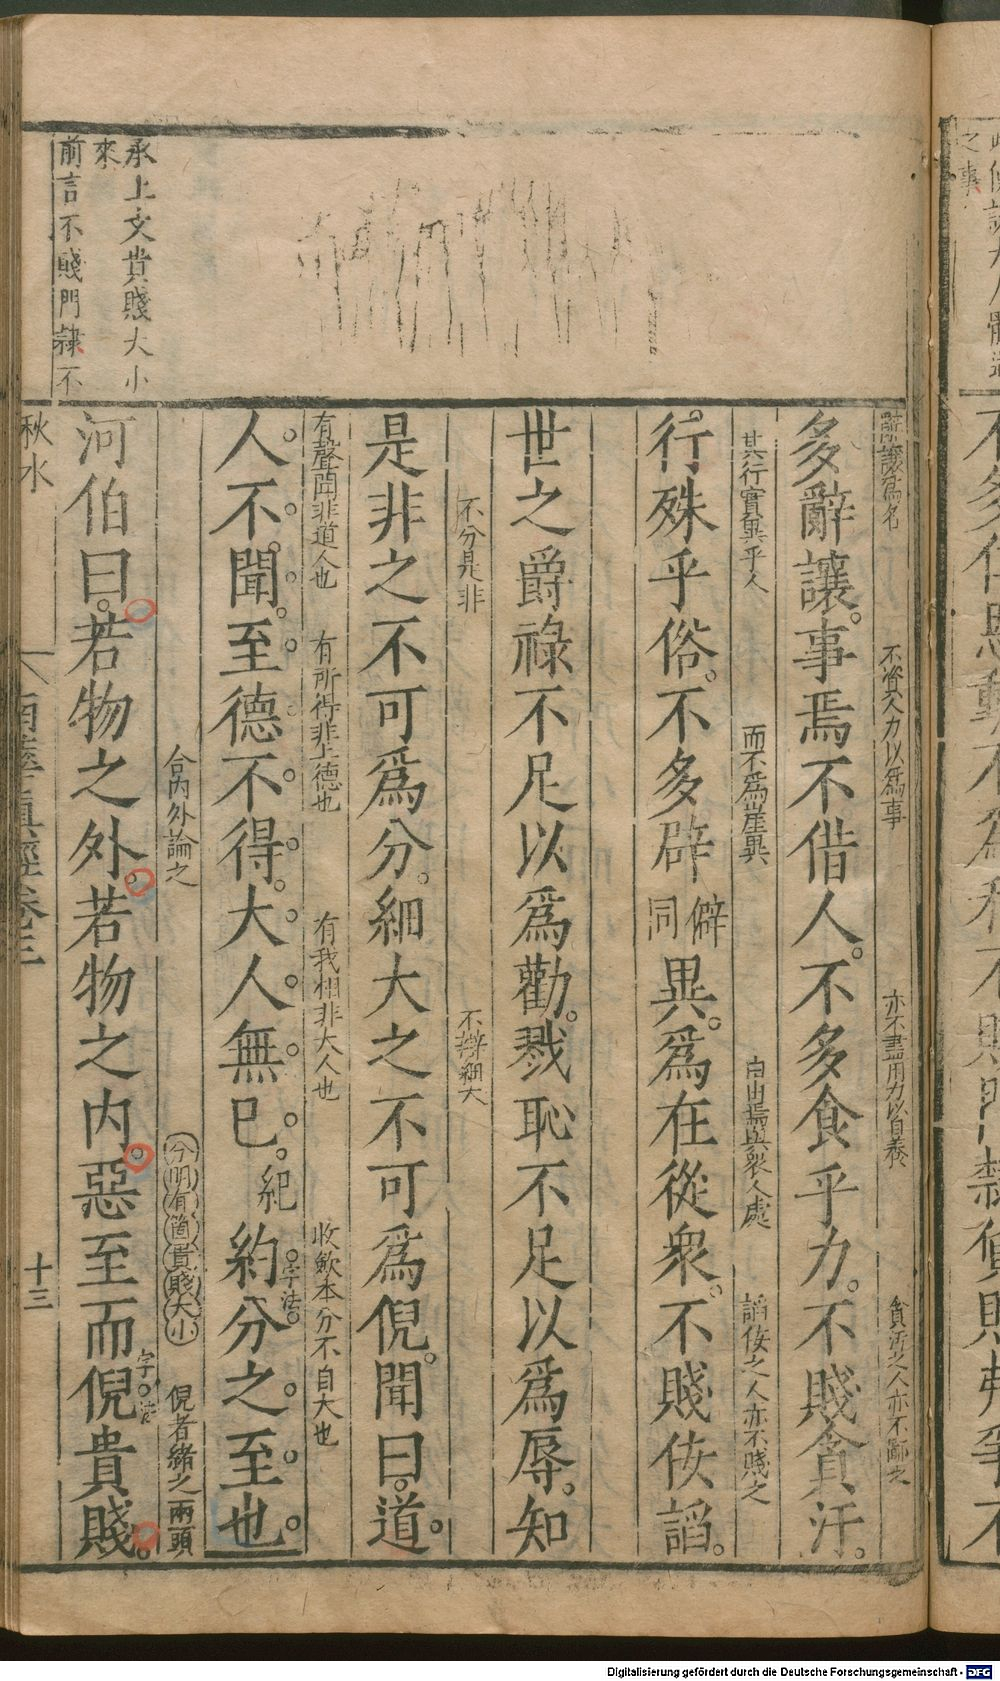 承上文貴賤大小
來
前言不賤門隸不
辭讓爲名 不資人力以爲事 亦不盡用力以自養 貪汚之人亦不鄙之
多辭讓。事焉不借人。不多食乎力。不賤貪汙。
其行實異乎人 而不爲崖異 自由焉與衆人處 謟佞之人亦不賤之
行殊乎俗。不多辟僻同異。爲在從衆。不賤佞謟。
世之爵祿不足以爲勸。戮恥不足以爲辱。知
不分是非 不辯細大
是非之不可爲分。細大之不可爲倪。聞曰。道
有聲聞非道人也 有所得非上德也 有我相非大人也 收歛本分不自大也
人不聞。至德不得。大人無已。紀約分之至也
字法
合內外論之 分明有箇貴賤大小 倪者緒之兩頭
河伯曰。若物之外。若物之內。惡至而倪貴賤。
字法
秋水 南華真經卷三 十三
Digitalisierung gefördert durch die Deutsche Forschungsgemeinschaft - DFG